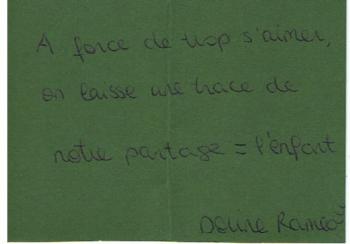 A force de trop s'aimer,
on laisse une trace de
notre partage = l'enfant